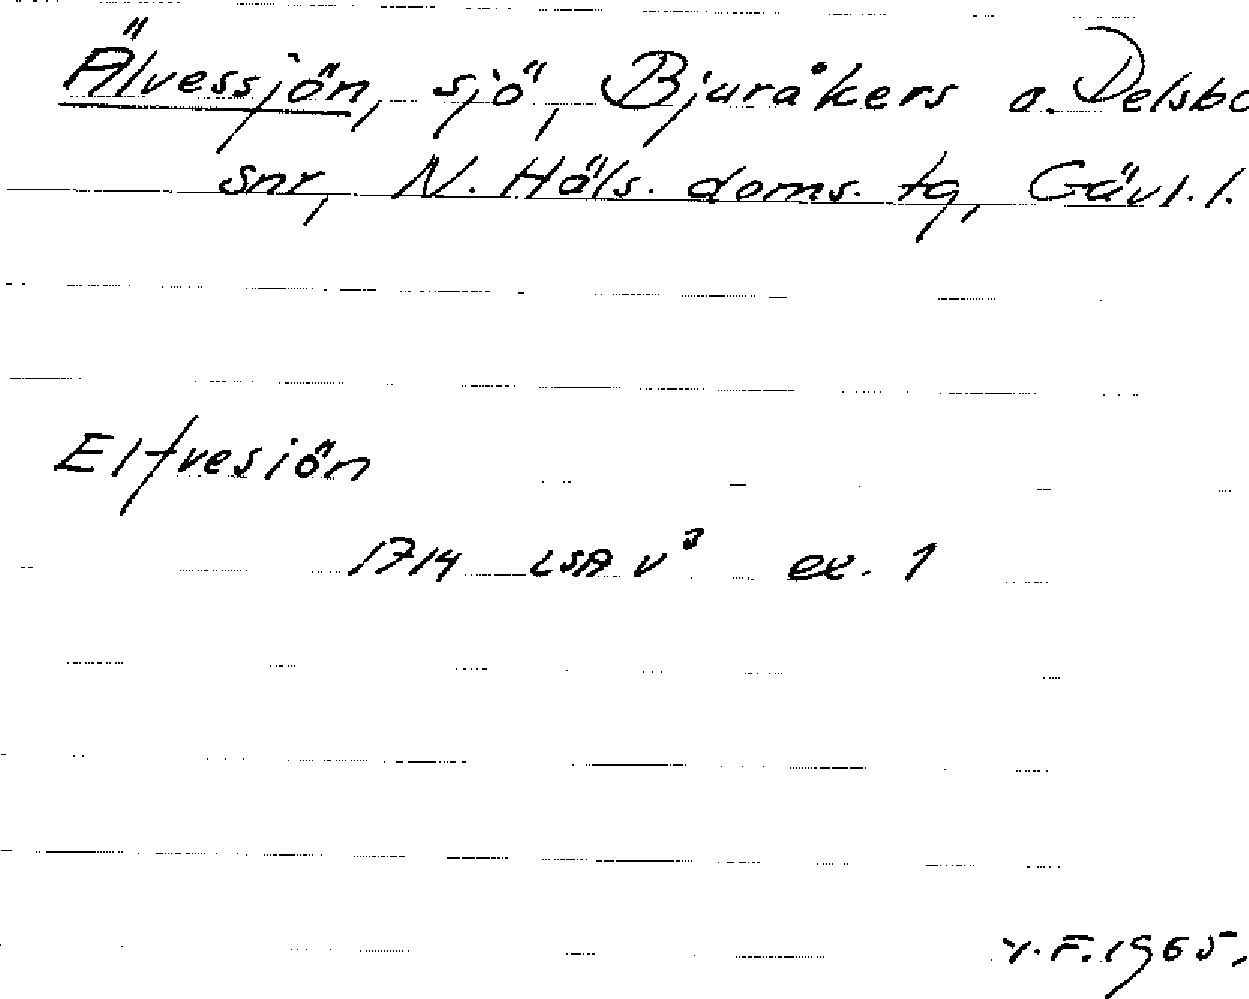 Älvessjön, sjö, Bjuråkers o. Delsbo
snr, N. Häls. doms. tg, Gävl. l.
Elfvesiön
1714 LSA v³ ex. 1
Y. F. 1965.